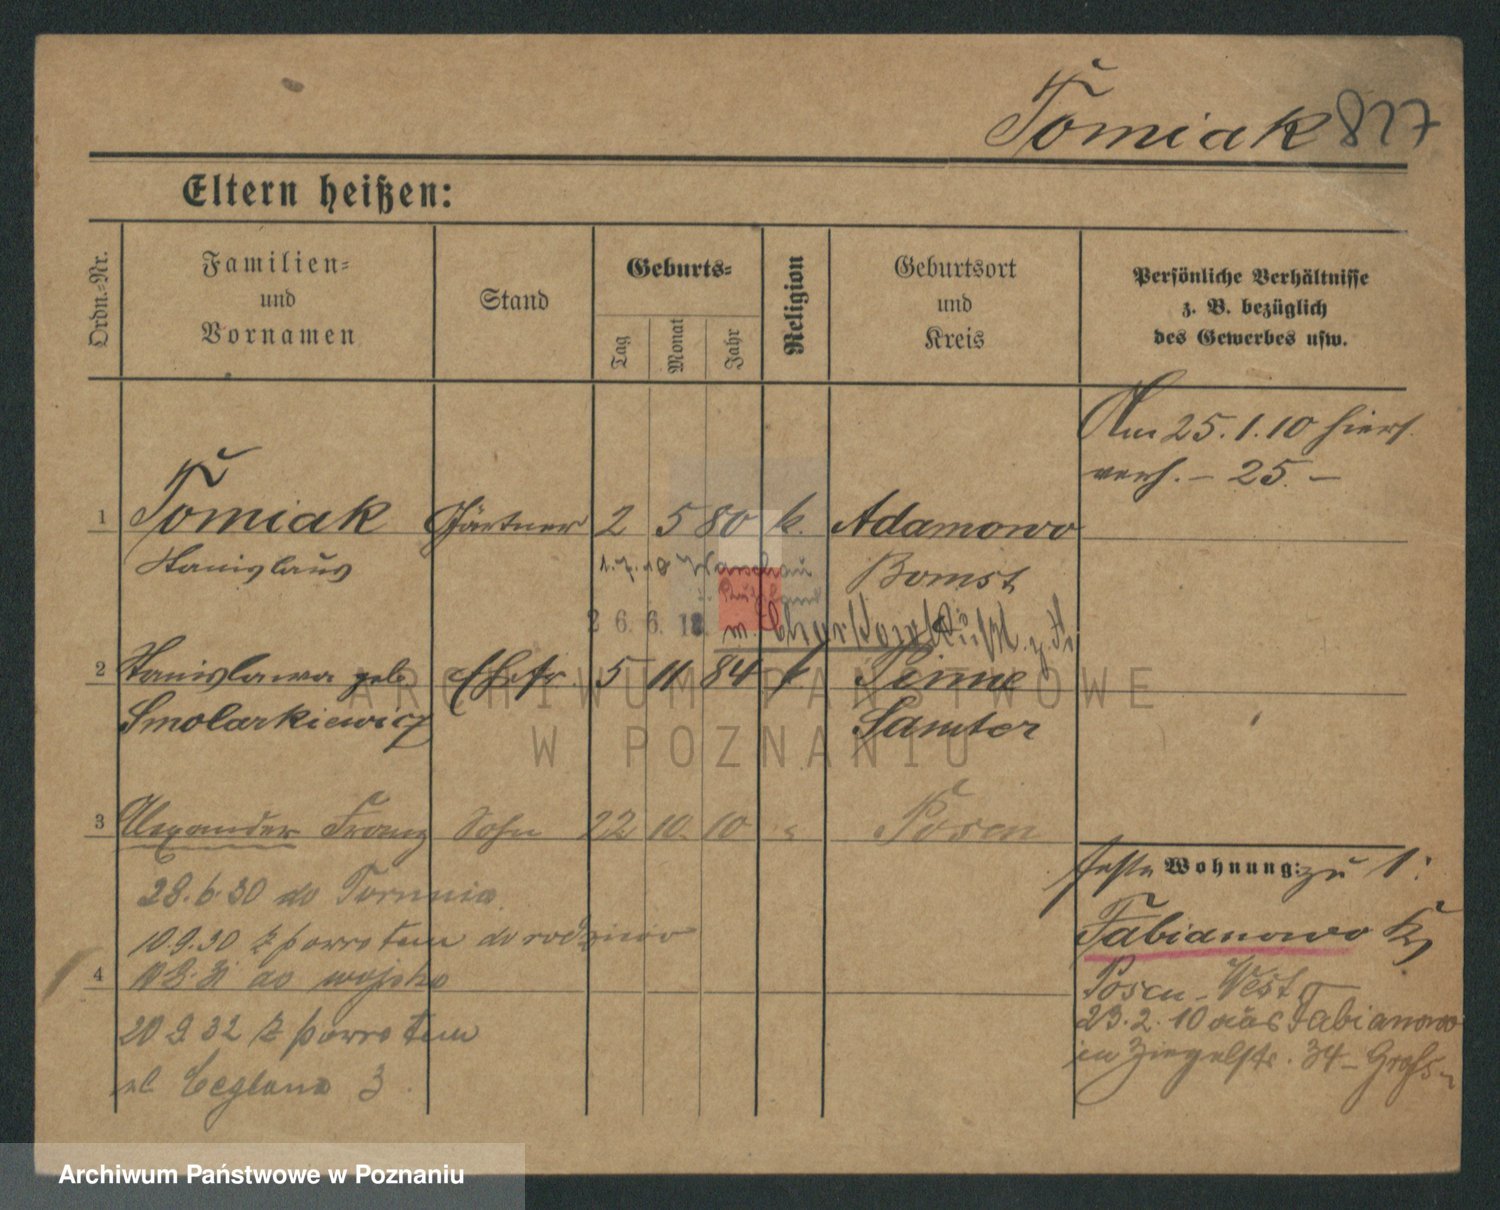 Tomiak 827
Eltern heißen:
Ordn.-Nr.
Familien-
und
Vornamen
Stand
Geburts-
Tag
Monat
Jahr
Religion
Geburtsort
und
Kreis
Persönliche Verhältnisse
z. B. bezüglich
des Gewerbes usw.
Am 25.1.10 hiers.
verh. – 25. –
1 Tomiak Gärtner 2 5 80 k. Adamowo
Stanislaus Bomst
26.6.18.
2 Stanislawa geb. Ehefr. 5 11 84 k. Pinne
Smolarkiewicz Samter
3 Alexander Franz Sohn 22 10. 10 Posen
28.6.30 do Torunia
10.9.30 z powrotem do rodziców
4 do wojska
20 9.32 z powrotem
ul. Ceglana 3.
feste Wohnung: zu 1:
Fabianowo Kr.
Posen-West
23.2.10 aus Fabianowo
in Ziegelstr. 34 –
ARCHIWUM PAŃSTWOWE
W POZNANIU
Archiwum Państwowe w Poznaniu